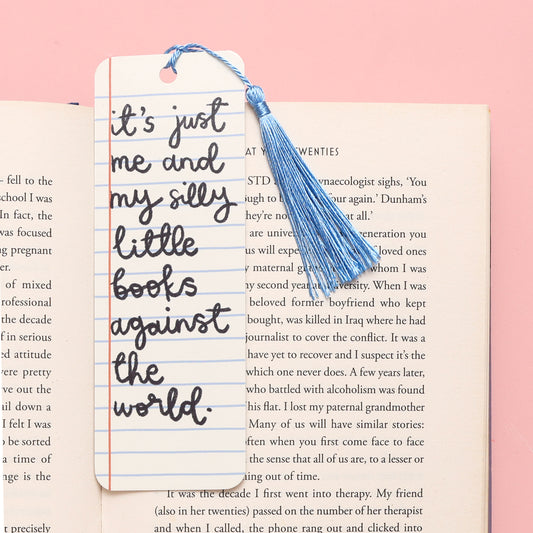 it's just
me and
my silly
little
books
against
the
world.
- fell to the
school I was
In fact, the
was focused
ng pregnant
er.
of mixed
rofessional
the decade
f in serious
ed attitude
were pretty
ve out the
ail down a
I felt I was
o be sorted
a time of
nge is the
t precisely
AT TWENTIES
STD gynaecologist sighs, 'You
ough to four again.' Dunham's
they're no at all.'
are univer generation you
us will expe loved ones
y maternal gr whom I was
ny second year University. When I was
beloved former boyfriend who kept
bought, was killed in Iraq where he had
journalist to cover the conflict. It was a
have yet to recover and I suspect it's the
which one never does. A few years later,
who battled with alcoholism was found
his flat. I lost my paternal grandmother
Many of us will have similar stories:
often when you first come face to face
the sense that all of us are, to a lesser or
ing out of time.
It was the decade I first went into therapy. My friend
(also in her twenties) passed on the number of her therapist
and when I called, the phone rang out and clicked into